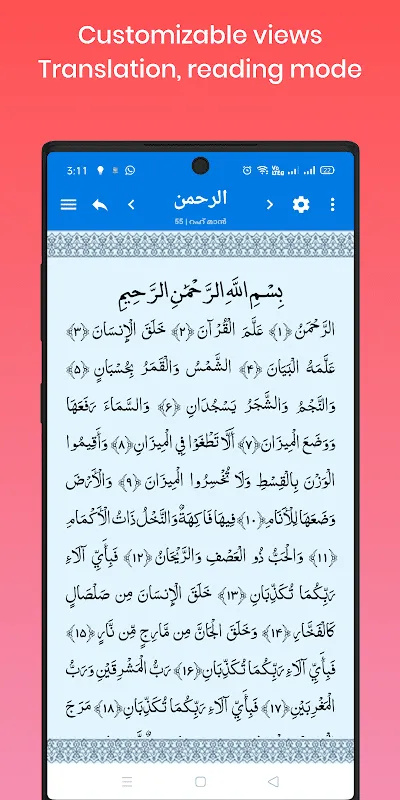 Customizable views
Translation, reading mode
3:11
Vo LTE2
22
الرحمن
55 | റഹ് മാൻ
بِسْمِ اللَّهِ الرَّحْمَٰنِ الرَّحِيمِ
الرَّحْمَٰنُ ﴿١﴾ عَلَّمَ الْقُرْآنَ ﴿٢﴾ خَلَقَ الْإِنسَانَ ﴿٣﴾
عَلَّمَهُ الْبَيَانَ ﴿٤﴾ الشَّمْسُ وَالْقَمَرُ بِحُسْبَانٍ ﴿٥﴾
وَالنَّجْمُ وَالشَّجَرُ يَسْجُدَانِ ﴿٦﴾ وَالسَّمَاءَ رَفَعَهَا
وَوَضَعَ الْمِيزَانَ ﴿٧﴾ أَلَّا تَطْغَوْا فِي الْمِيزَانِ ﴿٨﴾ وَأَقِيمُوا
الْوَزْنَ بِالْقِسْطِ وَلَا تُخْسِرُوا الْمِيزَانَ ﴿٩﴾ وَالْأَرْضَ
وَضَعَهَا لِلْأَنَامِ ﴿١٠﴾ فِيهَا فَاكِهَةٌ وَالنَّخْلُ ذَاتُ الْأَكْمَامِ
﴿١١﴾ وَالْحَبُّ ذُو الْعَصْفِ وَالرَّيْحَانُ ﴿١٢﴾ فَبِأَيِّ آلَاءِ
رَبِّكُمَا تُكَذِّبَانِ ﴿١٣﴾ خَلَقَ الْإِنسَانَ مِن صَلْصَالٍ
كَالْفَخَّارِ ﴿١٤﴾ وَخَلَقَ الْجَانَّ مِن مَّارِجٍ مِّن نَّارٍ ﴿١٥﴾
فَبِأَيِّ آلَاءِ رَبِّكُمَا تُكَذِّبَانِ ﴿١٦﴾ رَبُّ الْمَشْرِقَيْنِ وَرَبُّ
الْمَغْرِبَيْنِ ﴿١٧﴾ فَبِأَيِّ آلَاءِ رَبِّكُمَا تُكَذِّبَانِ ﴿١٨﴾ مَرَجَ